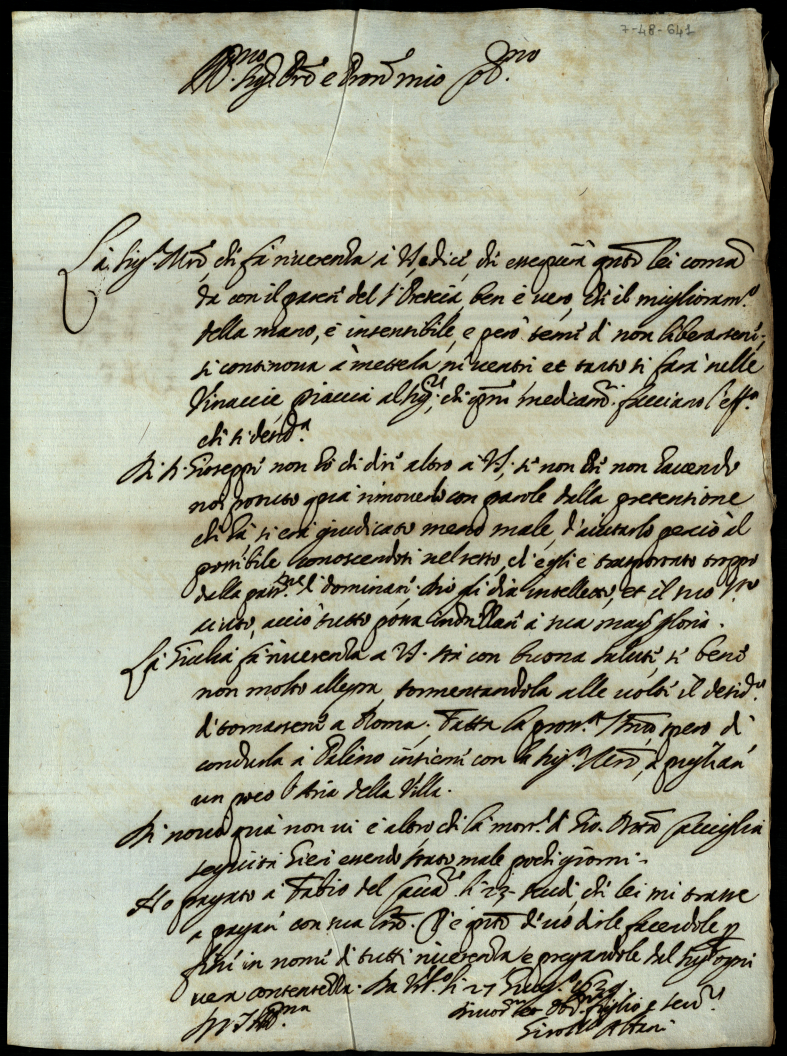 7-48-641
Ill.mo Sig.r P.rone e Pron mio oss.mo
La Sig.ra Mre, che fa riverenza a VS, dice, che esseguirà q.nto lei coman
da con il parere del S.r Brescia, ben è vero, che il miglioram.to
della mano, è insensibile, e però teme di non liberarsene,
si continova à metterla ne ventri et tanto si farà nelle
Vinaccie, piaccia al Sig.re, che q.sti medicam.ti facciano l'eff.o
che si desid.a
Di S. Gioseppe non hò che dire altro a VS, se non che non havendo
noi potuto qua rimoverlo con parole dalla pretensione
che là si era giudicato meno male, d'aiutarlo perciò al
possibile conoscendosi nel resto, ch'egli è trasportato troppo
dalla pass.ne di dominare. Dio gli dia intelletto, et il suo s.to
aiuto, acciò tutto possa indrizzare a sua magg.r gloria.
La Giulia fa riverenza a VS. stà con buona salute, se bene
non molto allegra, tormentandola alle volte il desid.o
di tornarsene a Roma. Fatta la
condurla a insieme con la Sig.ra Mre, a pigliare
un poco l'Aria della Villa.
Di novo quà non vi è altro che la morte di Gio. Batta
seguita hieri essendo stato male pochi giorni.
Ho pagato a Fabio del li 23 scudi, che lei mi trasse
a pagare con sua l.ra. Ch'è q.nto devo dirle facendole p
fine in nome di tutti riverenza e pregandole dal Sig.re ogni
vera contentezza. Da li 27
Di VS Ill.ma
Divotiss.o Obl.mo figlio e ser.re
Girol.mo Altieri